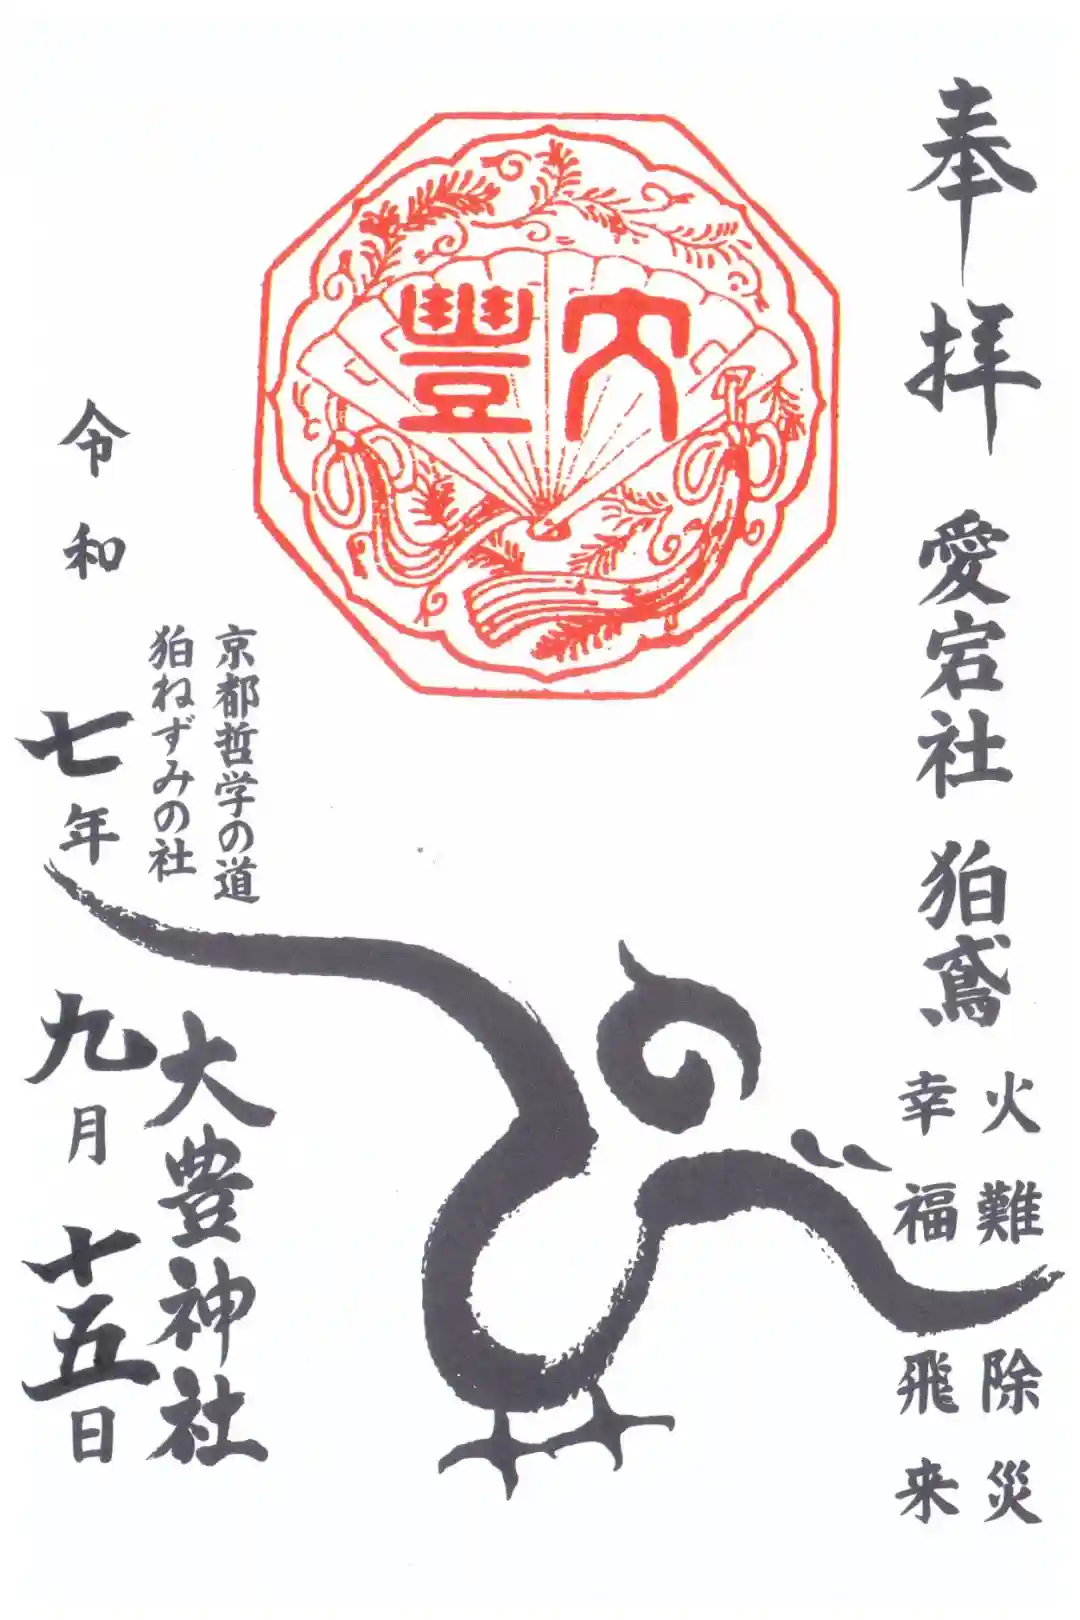 奉拝
愛宕社 狛鳶
火難除災
幸福飛来
大豊
京都哲学の道
狛ねずみの社
大豊神社
令和七年九月十五日